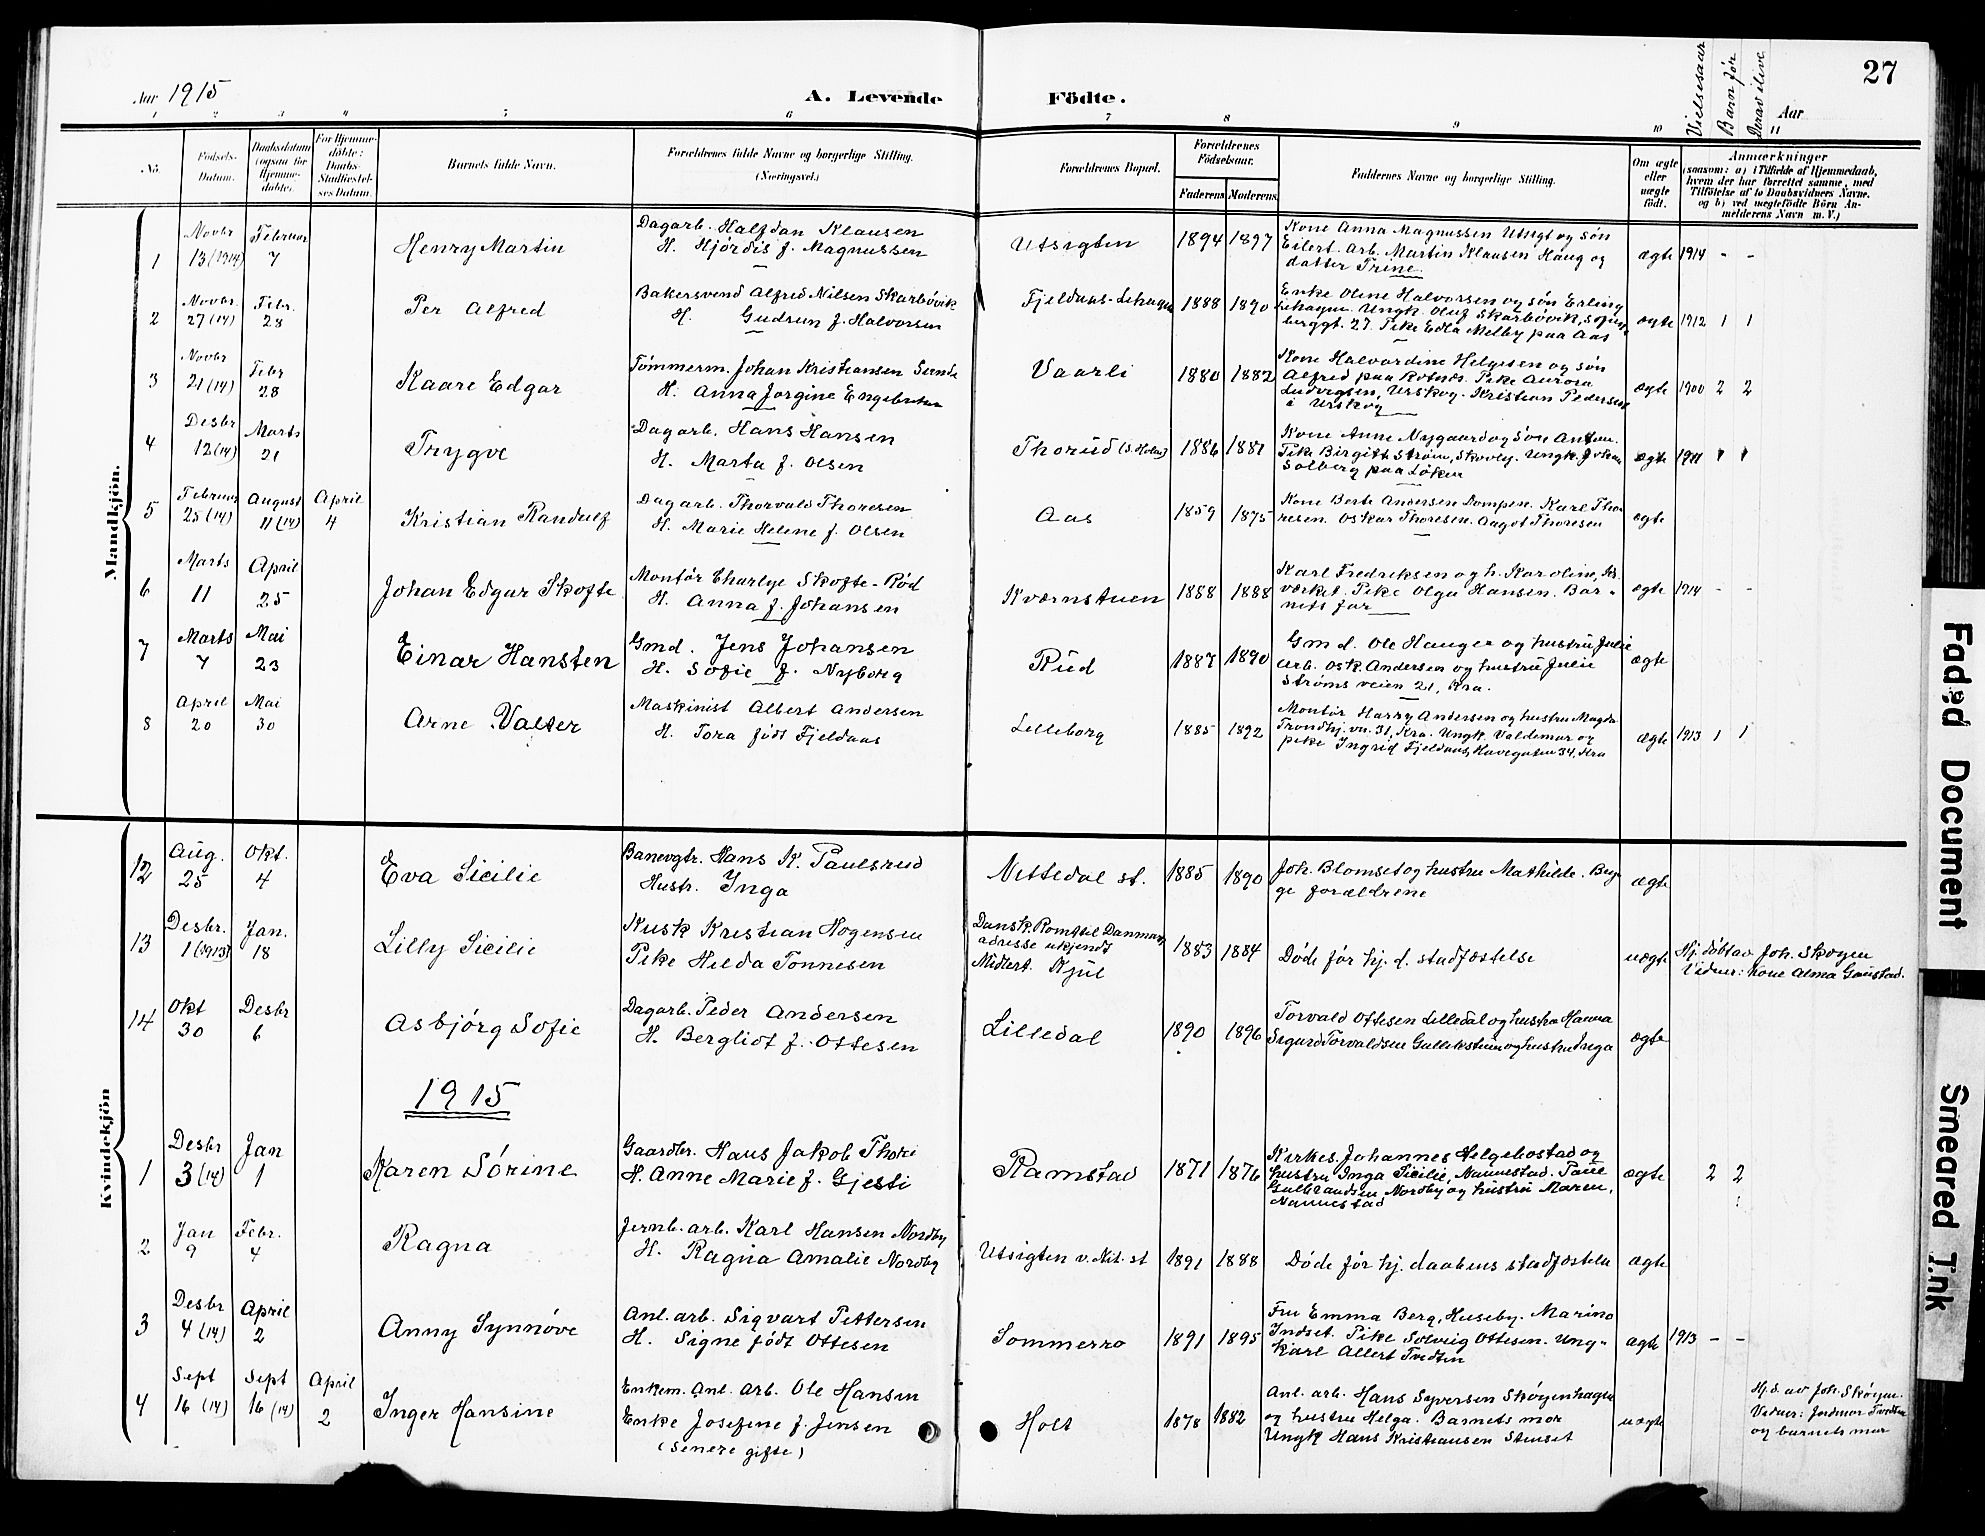 Aar 1915
A. Levende Födte.
Vielsesaar
Barn før
Derav ilive
Aar
27
1 2 3 4 5 6 7 8 9 10 11
No. Födsels-Datum. Daabsdatum (ogsaa för Hjemmedöbte). For Hjemmedöbte: Daabs-Stadfæstelses Datum. Barnets fulde Navn. Forældrenes fulde Navne og borgerlige Stilling. (Næringsvei.) Forældrenes Bopæl. Forældrenes Födselsaar. Faderens Moderens Faddernes Navne og borgerlige Stilling. Om ægte eller uægte födt. Anmærkninger
(saasom: a) i Tilfælde af Hjemmedaab, hvem der har forrettet samme, med Tilföielse af to Daabsvidners Navne. og b) ved uegtefödte Börn Anmelderens Navn m. V.)
Mandkjön.
1 Novbr 13 (1914) Februar 7 Henry Martin
Dagarb. Halfdan Klausen
H. Hjördis f. Magnussen
Utsigten 1894 1897
Kone Anna Magnussen Utsigt og søn
Eilert. Arb. Martin Klausen Haug og
datter Trine.
ægte 1914 - -
2 Novbr. 27 (14) Febr. 28 Per Alfred
Bakersvend Alfred Nilsen Skarbövik
H. Gudrun f. Halvorsen
Fjeldaas-Lehagen 1888 1890
Enke Oline Halvorsen og søn Erling
Lehagen. Ungk. Oluf Skarbövik,
berggt. 27. Pike Edla Melby paa Aas
ægte 1912 1 1
3 Novbr 21 (14) Febr 28 Kaare Edgar
Tømmerm. Johan Kristiansen
H. Anna Jorgine
Vaarli 1880 1882
Kone Halvardine Helgesen og søn
Alfred paa Rotnes. Pike Aurora
Ludvigsen, Urskog. Kristian Pedersen
i Urskog
ægte 1900 2 2
4 Desbr 12 (14) Marts 21 Trygve
Dagarb. Hans Hansen
H. Marta f. Olsen
Thorud (S. Holm) 1886 1881
Kone Anne Nygaard og søn Anton.
Pike Birgitt Strøm, Skovby. Ungk. Johan
Solberg paa Løken
ægte 1911 1 1
5 Februar 25 (14) August 11 (14) April 4 Kristian Randulf
Dagarb. Thorvald Thoresen
H. Marie Helene f. Olsen
Aas 1859 1875
Kone Berte Andersen Dompen. Karl Tho-
resen. Oskar Thoresen. Aagot Thoresen
ægte
6 Marts 11 April 25 Johan Edgar Skofte
Montör Charlye Skofte-Röd
H. Anna f. Johansen
Kværnstuen 1888 1888
Karl Fredriksen og h. Karoline, Kr.
værket. Pike Olga Hansen. Bar-
nets far
ægte 1914 - -
7 Marts 7 Mai 23 Einar Hansten
Gmd. Jens Johansen
H. Sofie f. Nyborg
Rud 1887 1890
Gmd. Ole Hauger og hustru Julie
Arb. Osk. Andersen og hustru Julie
Strømsveien 21, Kra.
ægte
8 April 20 Mai 30 Arne Valter
Maskinist Albert Andersen
H. Tora født Fjeldaas
Lilleborg 1885 1892
Montør Harry Andersen og hustru Magda
Trondhj. vn. 31, Kra. Ungk. Valdemar og
pike Ingrid Fjeldaas, Havegaten 34, Kra
ægte 1913 1 1
Kvindekjön
12 Aug. 25 Okt. 4 Eva Sicilie
Banevgtr. Hans K. Paulsrud
Hustr. Inga
Nittedal st. 1885 1890
Joh. Blomset og hustru Mathilde. Beg-
ge forældrene
ægte
13 Desbr. 1 (1913) Jan. 18 Lilly Sicilie
Kusk Kristian Mogensen
Pike Hilda Tønnesen
Dansk. Romt til Danmark,
adresse ukjendt
Midlert. Kjul
1883 1884
Døde før hj. d. stadfæstelse
uægte
Hj. døbt av Joh. Skøyen
Vidner: kone Alma Gaustad.
14 Okt 30 Desbr 6 Asbjørg Sofie
Dagarb. Peder Andersen
H. Bergliot f. Ottesen
Lilledal 1890 1896
Torvald Ottesen Lilledal og hustru Hanna
Sigurd Torvaldsen Gullikstuen og hustru Inga
ægte
1915
1 Desbr 3 (14) Jan 1 Karen Sørine
Gaardbr. Hans Jakob Thori
H. Anne Marie f. Gjesti
Ramstad 1871 1876
Kirkes. Johannes Helgebostad og
hustru Inga Sicilie, Nannestad. Paul
Gulbrandsen Nordby og hustru Maren,
Nannestad
ægte 2 2
2 Jan 9 Febr. 4 Ragna
Jernb. arb. Karl Hansen Nordby
H. Ragna Amalie Nordby
Utsigten v. Nit. st 1891 1888
Døde før hj. daabens stadfæstelse
ægte
3 Desbr 4 (14) April 2 Anny Synnøve
Anl. arb. Sigvart Pettersen
H. Signe født Ottesen
Sommerro 1891 1895
Fru Emma Berg, Huseby. Marino
Indset. Pike Solveig Ottesen. Ung-
karl Allert Tvedten
ægte 1913 - -
4 Sept 16 (14) Sept 16 (14) April 2 Inger Hansine
Enkem. Anl. arb. Ole Hansen
Enke Josefine f. Jensen
(senere gifte)
Holt 1878 1882
Anl. arb. Hans Syversen Skøyenhagen
og hustru Helga. Barnets mor
Ungk Hans Kristiansen Stenset
uægte
Hj. d. av Joh. Skøyen.
Vidner: Jordmor Tvedten
og barnets mor
Faded Document
Smeared Ink